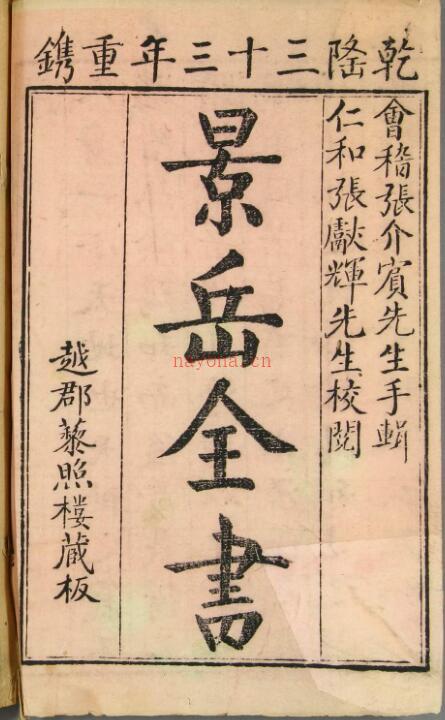 乾隆三十三年重鐫
會稽張介賓先生手輯
仁和張獻輝先生校閱
景岳全書
越郡藜照樓蔵板
nayona.cn